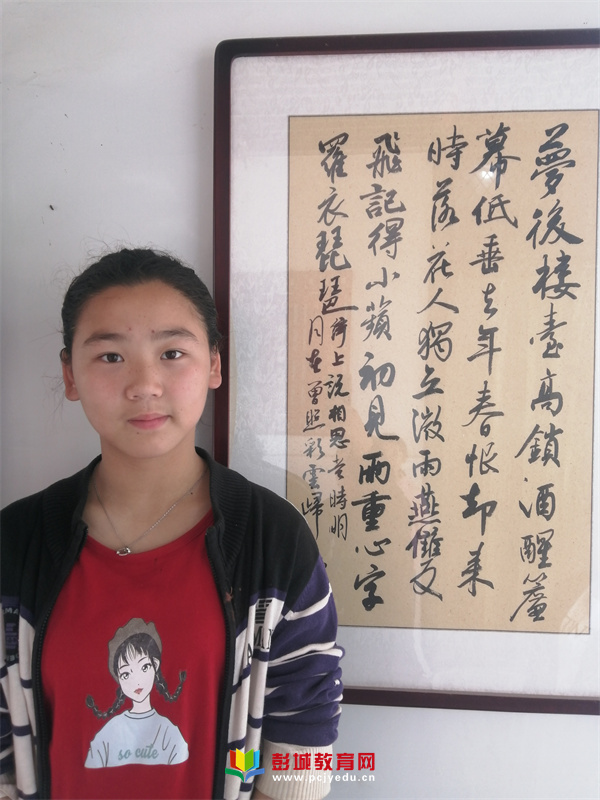 夢後樓臺高鎖酒醒簾
幕低垂去年春恨却來
時落花人獨立微雨燕雙
飛記得小蘋初見兩重心字
羅衣琵琶弦上説相思當時明
月在曾照彩雲歸
so cute
彭城教育网
www.pcjyedu.cn